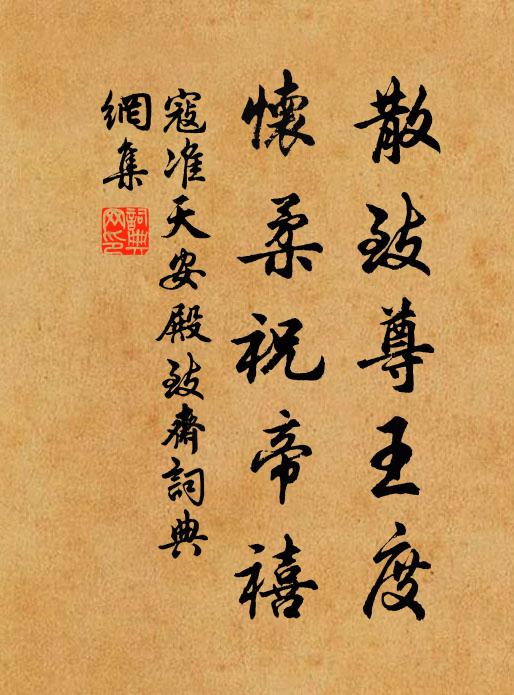 散致尊王度
懷柔祝帝禧
寇准天安殿致齋詞典
網集
詞典
网印